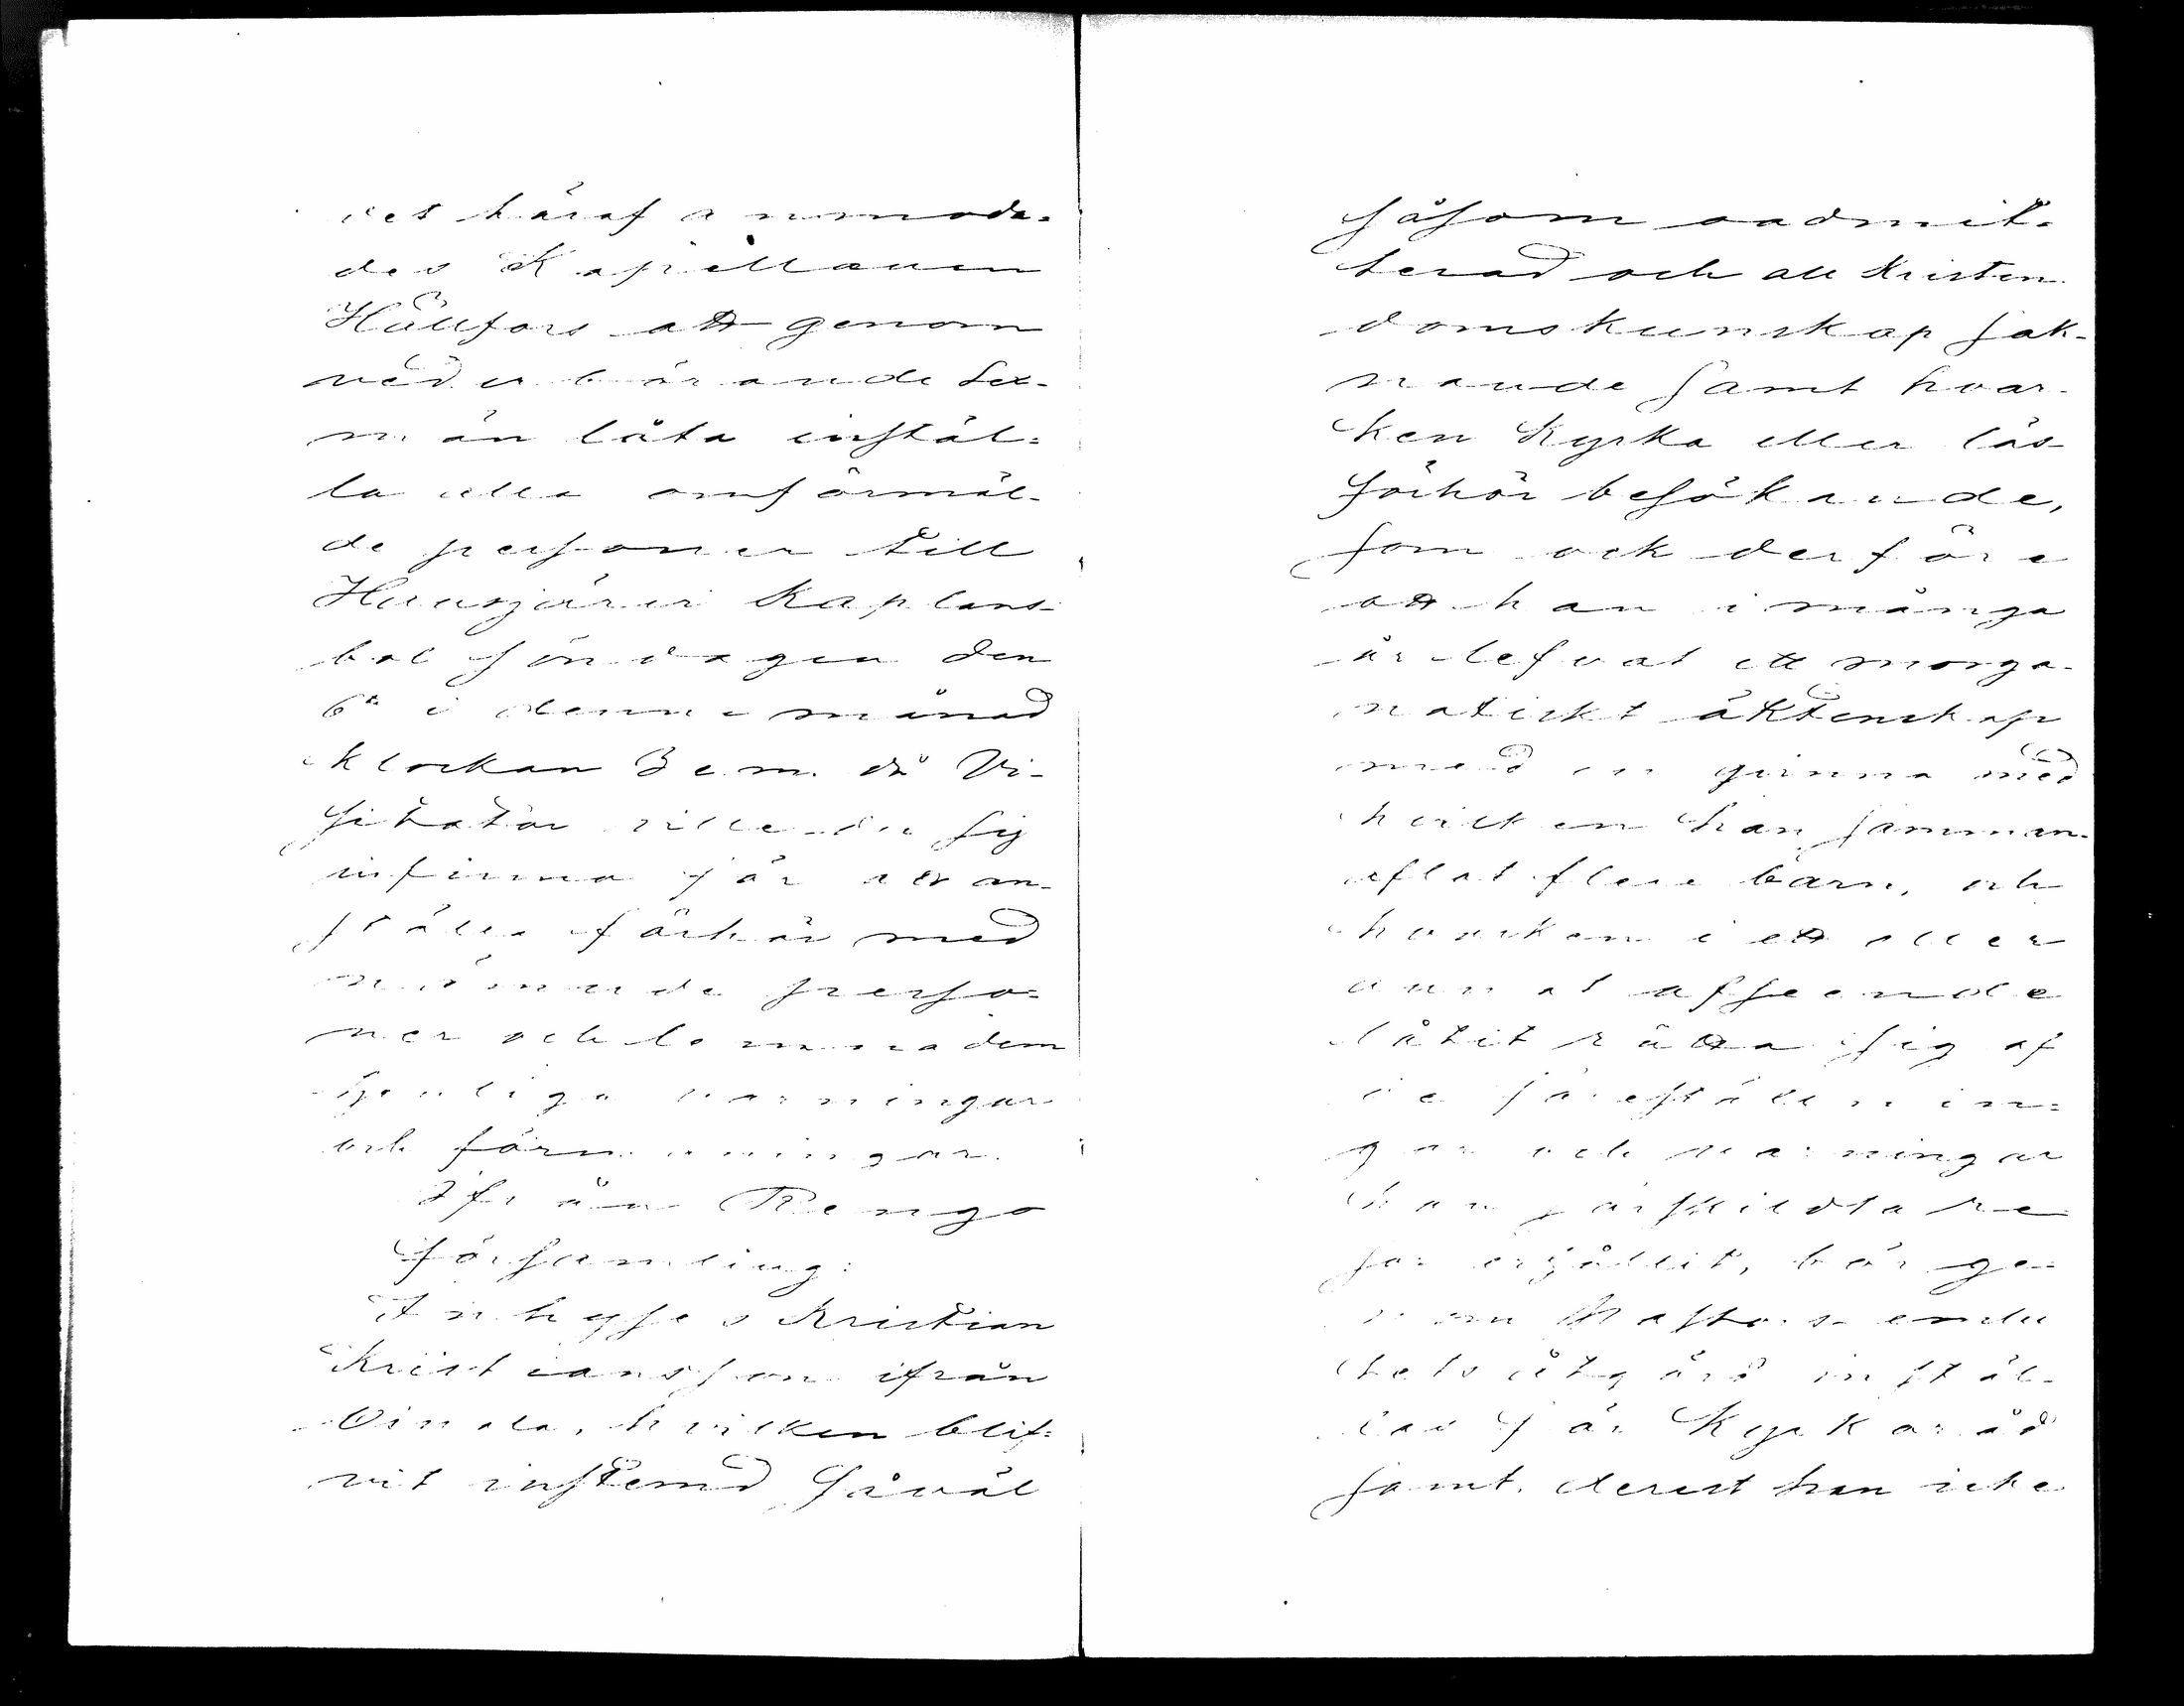 det häraf anmoda=
des Kapellanen
Hällfors att genom
vederbörande Sex-
män låta instäl=
la alla omförmäl-
de personer till
Hausjärvi Kaplans-
bol söndagen den
6te i denna månad
klockan 3 e.m. då Vi-
sitator ville der sig
infinna för att an-
ställa förhör med
nämnde perso=
ner och lemna dem
ljenliga varningar
och förmaningar.
Ifrån Rengo
församling:
Inhyses Kristian
Kristiansson ifrån
Oinala, hvilken blif=
vit instemd såväl
såsom oadmit=
terad och all Kristen
domskunskap sak-
nande samt hvar-
ken Kyrka eller läs-
förhör besökande,
som ock derföre
att han i många
år lefvat ett morga-
natiskt äktenskap
med en qvinna med
hvilken han samman-
aflat flere barn, och
hvarken i ett eller
annat afseende
låtit rätta sig af
de föreställnin=
gar och varningar
han särskildta re-
sor erhållit, bör ge=
nom Pastors embe
tets åtgärd instäl-
las för Kyrkoråd
samt, derest han icke